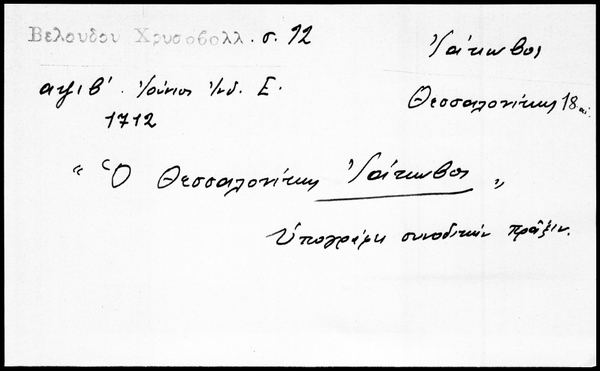 Βελουδου Χρυσοβολλ. σ. 92
Ἰάκωβος
Θεσσαλονίκης 18 αἰ.
αψιβ´. Ἰούνιος Ἰνδ. Ε.
1712
"Ὁ Θεσσαλονίκης Ἰάκωβος"
Ὑπογράφει συνοδικὴν πρᾶξιν.